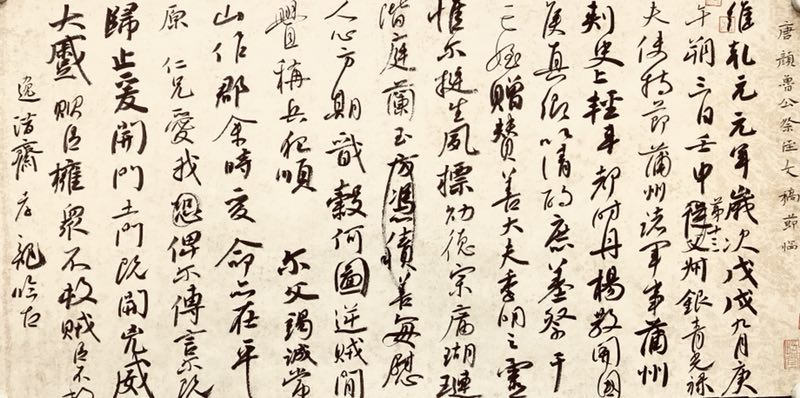 唐顏魯公祭侄文稿節臨
維乾元元年歲次戊戌九月庚
午朔三日壬申第十三從父州銀青光祿
夫使持節蒲州諸軍事蒲州
刺史上輕車都尉丹楊縣開國
侯真卿以清酌庶羞祭于
亡姪贈贊善大夫季明之靈
惟尔挺生夙標幼德宗廟瑚璉
階庭蘭玉方憑積善每慰
人心方期戩穀何圖逆賊閒
釁稱兵犯順尔父竭誠常
山作郡余時受命亦在平
原仁兄愛我恐俾尔傳言尔既
歸止爰開門土門既開凶威
大蹙賊臣擁眾不救賊臣不救
齋